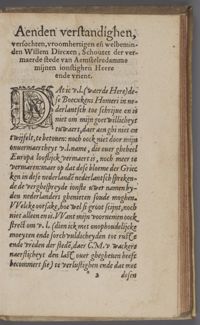 Aenden verstandighen,
versochten, vroomhertigen eñ welbemin-
den Willem Dircxen, Schoutet der ver-
maerde stede van Aemstelredamme
mijnen ionstighen Heere
ende vrient.
DAt ic v.l. (waerde Here) de-
se Boecxkens Homeri in ne-
derlantsch toe schrijue en is
niet om mijn goet willicheyt
tuwaers, daer aen ghi niet en
twijfelt, te betonen: noch oock niet door mijn
onuermaertheyt v.l. name, die ouer gheheel
Europa looflijck vermaert is, noch meer te
vermaren: maer op dat dese bloeme der Griec
ken in dese nederlandē nederlantsch spreken-
de de verghestryde ionste uwer namen by-
den nederlanders ghenieten soude moghen.
Welcke oorsake, hoe wel si groot schijnt, noch
niet alleen en is. Want mijn voornemen oock
strect om v.l. (dien ick met onophoudelijcke
moeyten ende sorchvuldicheyden tot ruste
ende vreden der stede, daer C.M. v wackere
naerstichyt den last ouer gheghenen heeft
becommert sie) te verlustighen ende dat met
a
desen